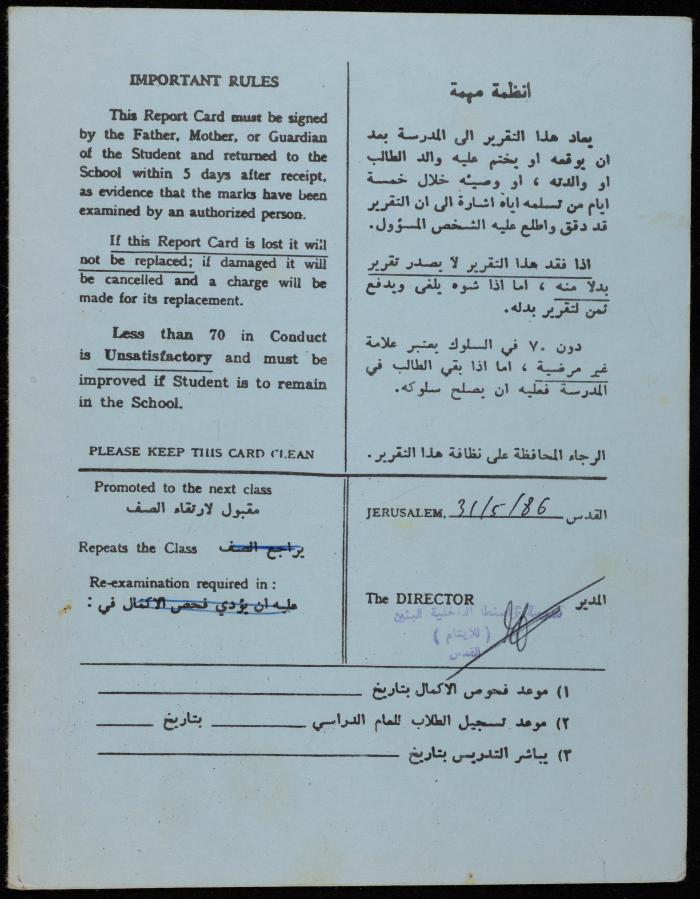 IMPORTANT RULES
This Report Card must be signed
by the Father, Mother, or Guardian
of the Student and returned to the
School within 5 days after receipt,
as evidence that the marks have been
examined by an authorized person.
If this Report Card is lost it will
not be replaced; if damaged it will
be cancelled and a charge will be
made for its replacement.
Less than 70 in Conduct
is Unsatisfactory and must be
improved if Student is to remain
in the School.
PLEASE KEEP THIS CARD CLEAN
انظمة مهمة
يعاد هذا التقرير الى المدرسة بعد
ان يوقعه او يختم عليه والد الطالب
او والدته ، او وصيئه خلال خمسة
ايام من تسلمه اياه اشارة الى ان التقرير
قد دقق واطلع عليه الشخص المسؤول.
اذا فقد هذا التقرير لا يصدر تقرير
بدلا منه ، اما اذا شوه يلغى ويدفع
ثمن لتقرير بدله.
دون ٧٠ في السلوك يعتبر علامة
غير مرضية ، اما اذا بقي الطالب في
المدرسة فعليه ان يصلح سلوكه.
الرجاء المحافظة على نظافة هذا التقرير.
Promoted to the next class
مقبول لارتقاء الصف
Repeats the Class يراجع الصف
Re-examination required in :
عليه ان يؤدي فحص الاكمال في :
JERUSALEM, 31/5/86 القدس
The DIRECTOR المدير
الداخلية للبنين
( للايتام )
القدس
١) موعد فحوص الاكمال بتاريخ
٢) موعد تسجيل الطلاب للعام الدراسي بتاريخ
٣) يباشر التدريس بتاريخ